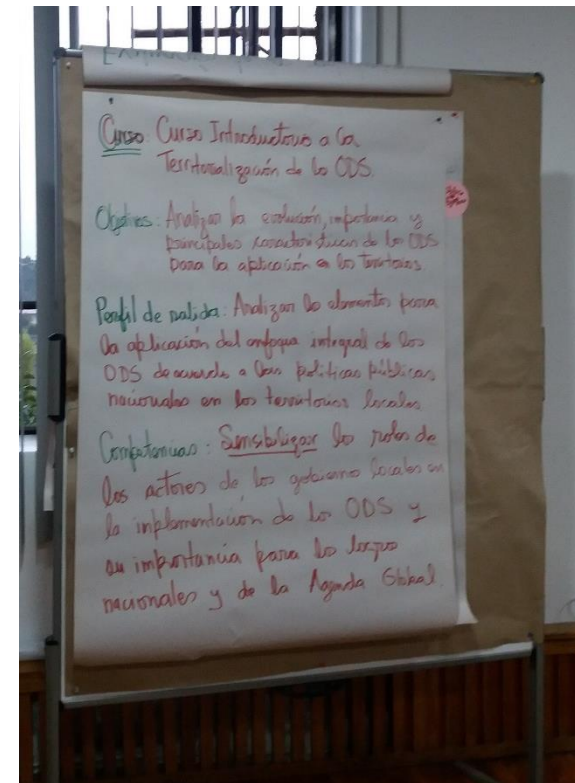 Curso: Curso Introductorio a la
Territorialización de lo ODS.
Objetivos: Analizar la evolución, importancia y
principales características de los ODS
para la aplicación en los territorios.
Perfil de salida: Analizar lo elementos para
la aplicación del enfoque integral de los
ODS de acuerdo a las políticas públicas
nacionales en los territorios locales
Competencias: Sensibilizar lo roles de
los actores de los gobierno locales en
la implementación de los ODS y
su importancia para lo logro
nacionales y de la Agenda Global